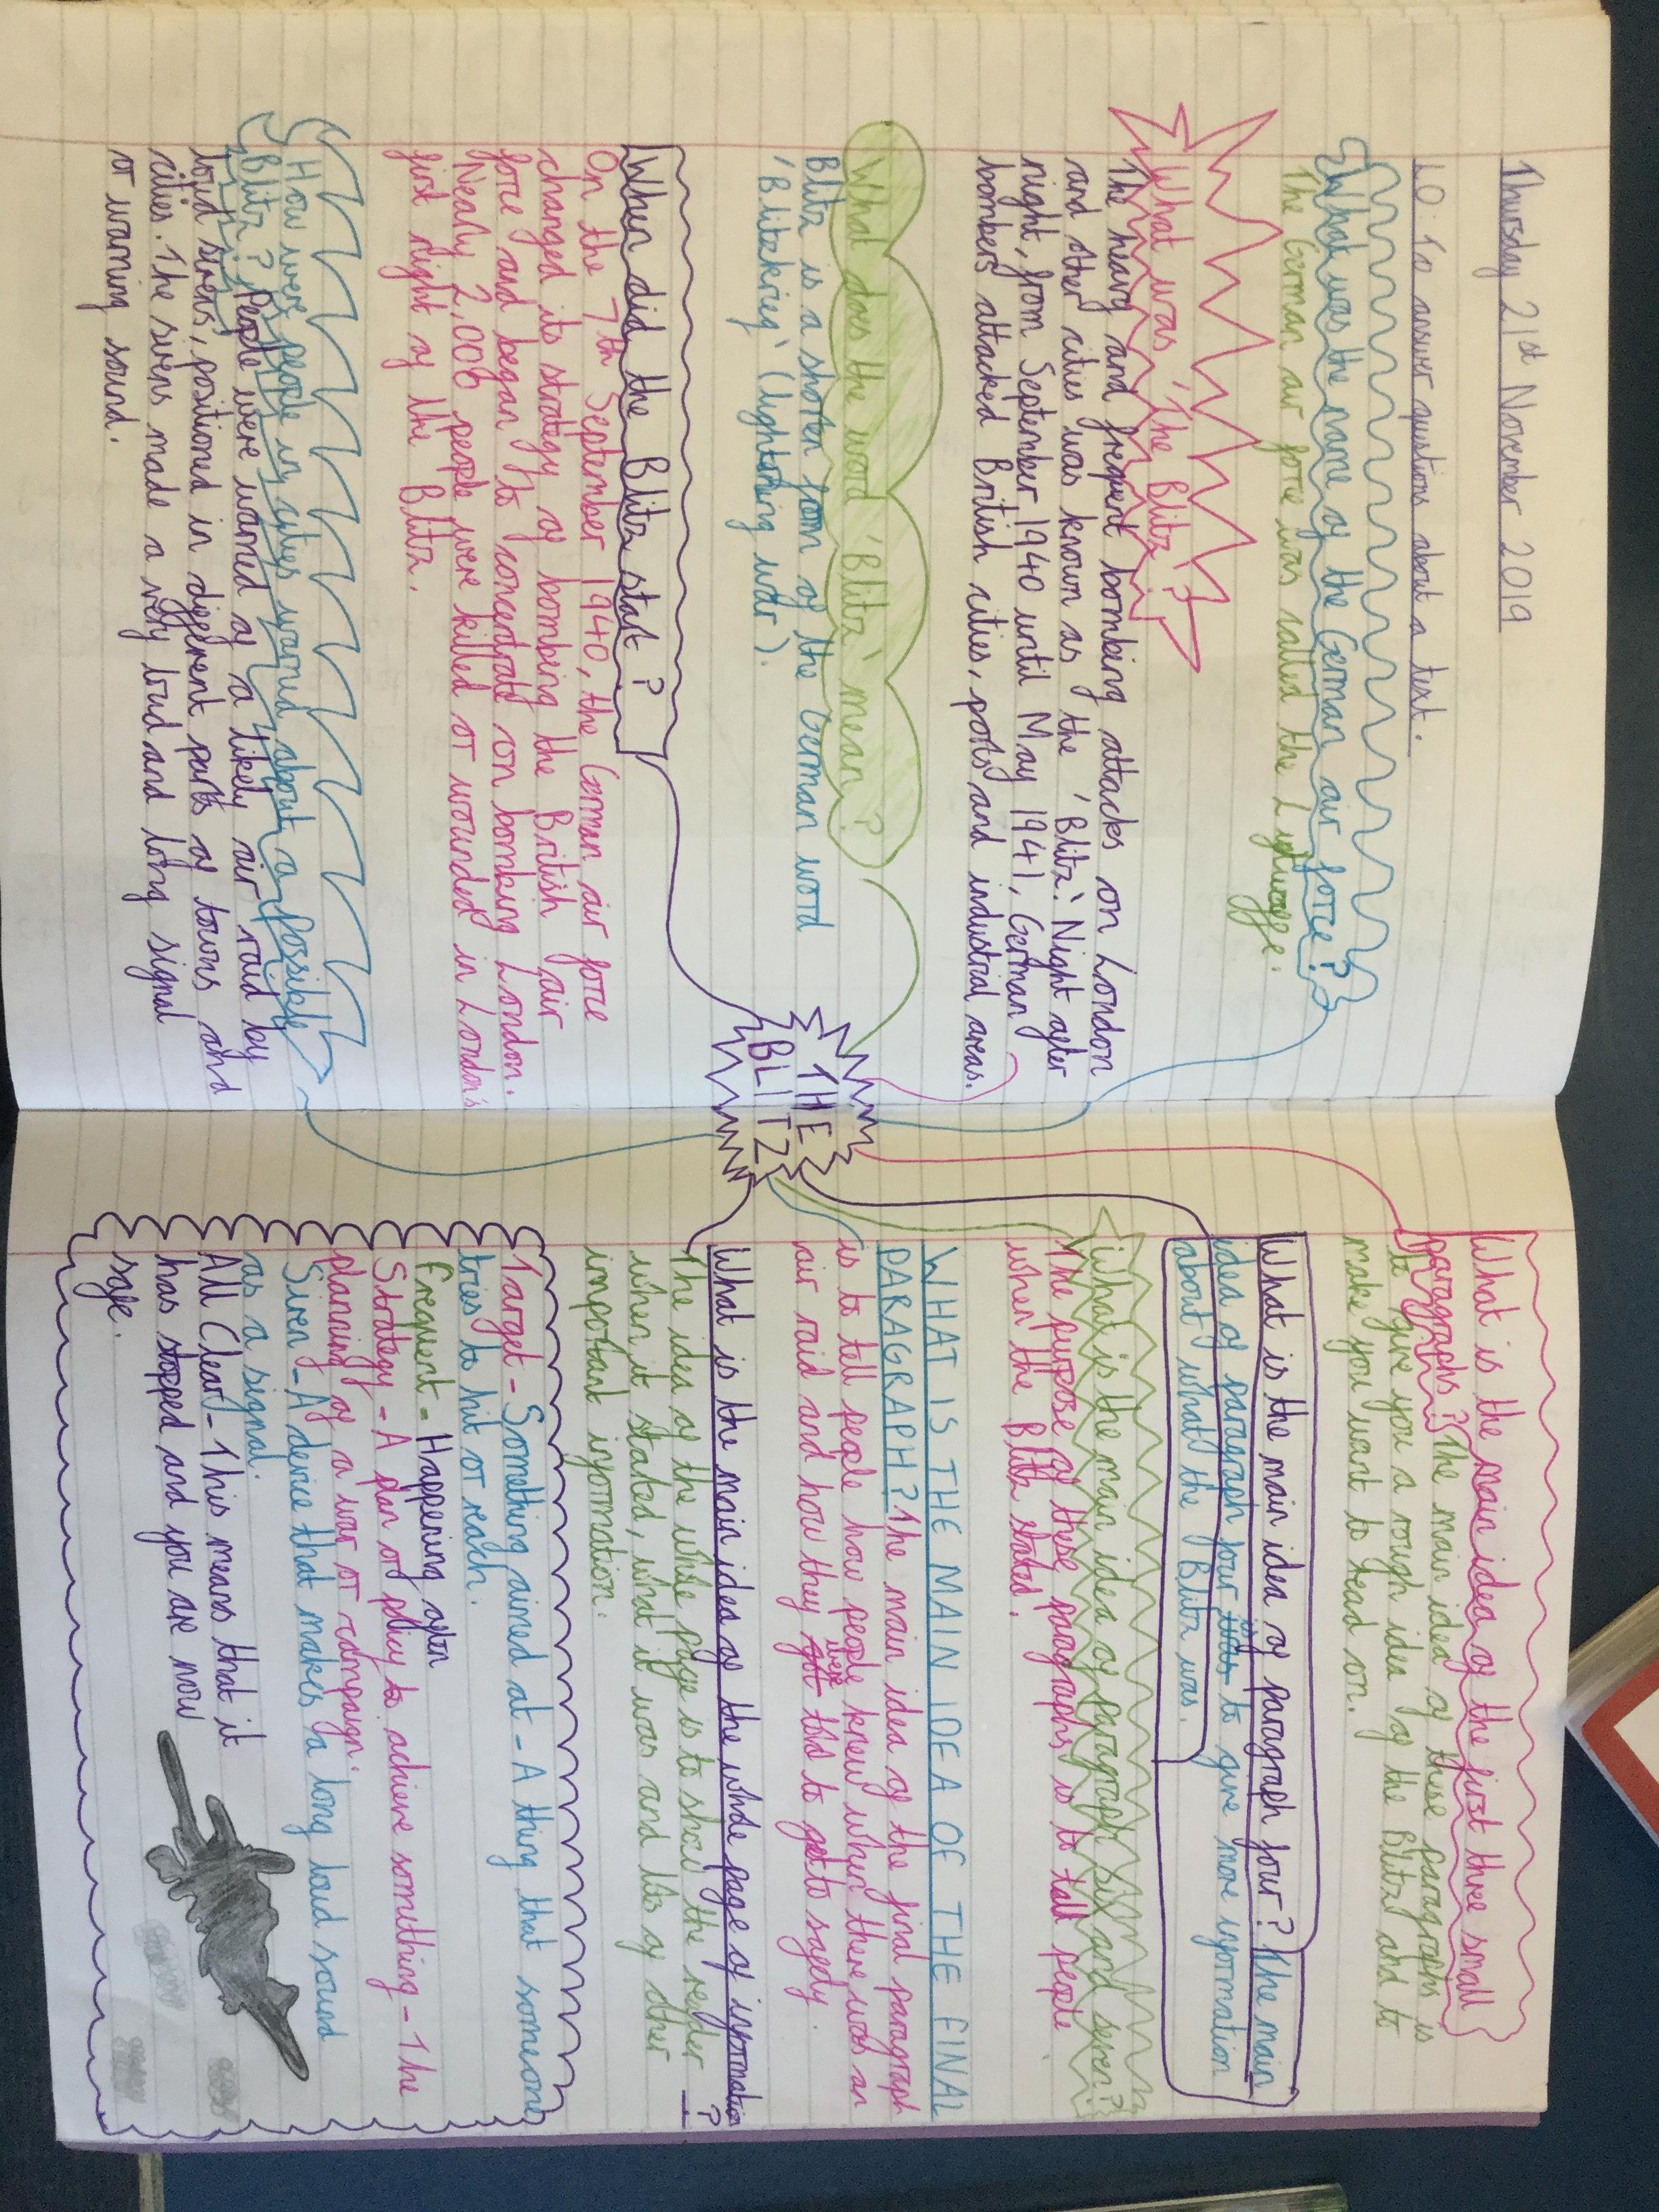 Thursday 21st November 2019
LO: To answer questions about a text.
What was the name of the German air force?
The German air force was called the Luftwaffe.
What was 'The Blitz'?
The heavy and frequent bombing attacks on London
and other cities was known as the 'Blitz'. Night after
night, from September 1940 until May 1941, German
bombers attacked British cities, ports and industrial areas.
What does the word 'Blitz' mean?
Blitz is a shorten from of the German word
'Blitzkrieg' (lightening war).
When did the Blitz start?
On the 7th September 1940, the German air force
changed its strategy of bombing the British air
force and began to concentrate on bombing London.
Nealy 2,000 people were killed or wounded in London's
first night of the Blitz.
How were people in cities warned about a possible
Blitz? People were warned of a likely air raid by
loud sirens, positioned in different parts of towns and
cities. The sirens made a very loud and long signal
or warning sound.
THE
BLITZ
What is the main idea of the first three small
paragraphs? The main idea of these paragraphs is
to give you a rough idea of the Blitz and to
make you want to read on.
What is the main idea of paragraph four? The main
idea of paragraph four is to give more information
about what the Blitz was.
What is the main idea of paragraph six and seven?
The purpose of these paragraphs is to tell people
when the Blitz started.
WHAT IS THE MAIN IDEA OF THE FINAL
PARAGRAPH? The main idea of the final paragraph
is to tell people how people knew when there was an
air raid and how they were told to get to safety.
What is the main idea of the whole page of information?
The idea of the whole page is to show the reader
when it started, what it was and lots of other
important information.
Target - Something aimed at - A thing that someone
tries to hit or reach.
Frequent - Happening often
Strategy - A plan or policy to achieve something - The
planning of a war or campaign.
Siren - A device that makes a long loud sound
as a signal.
All Clear - This means that it
has stopped and you are now
safe.